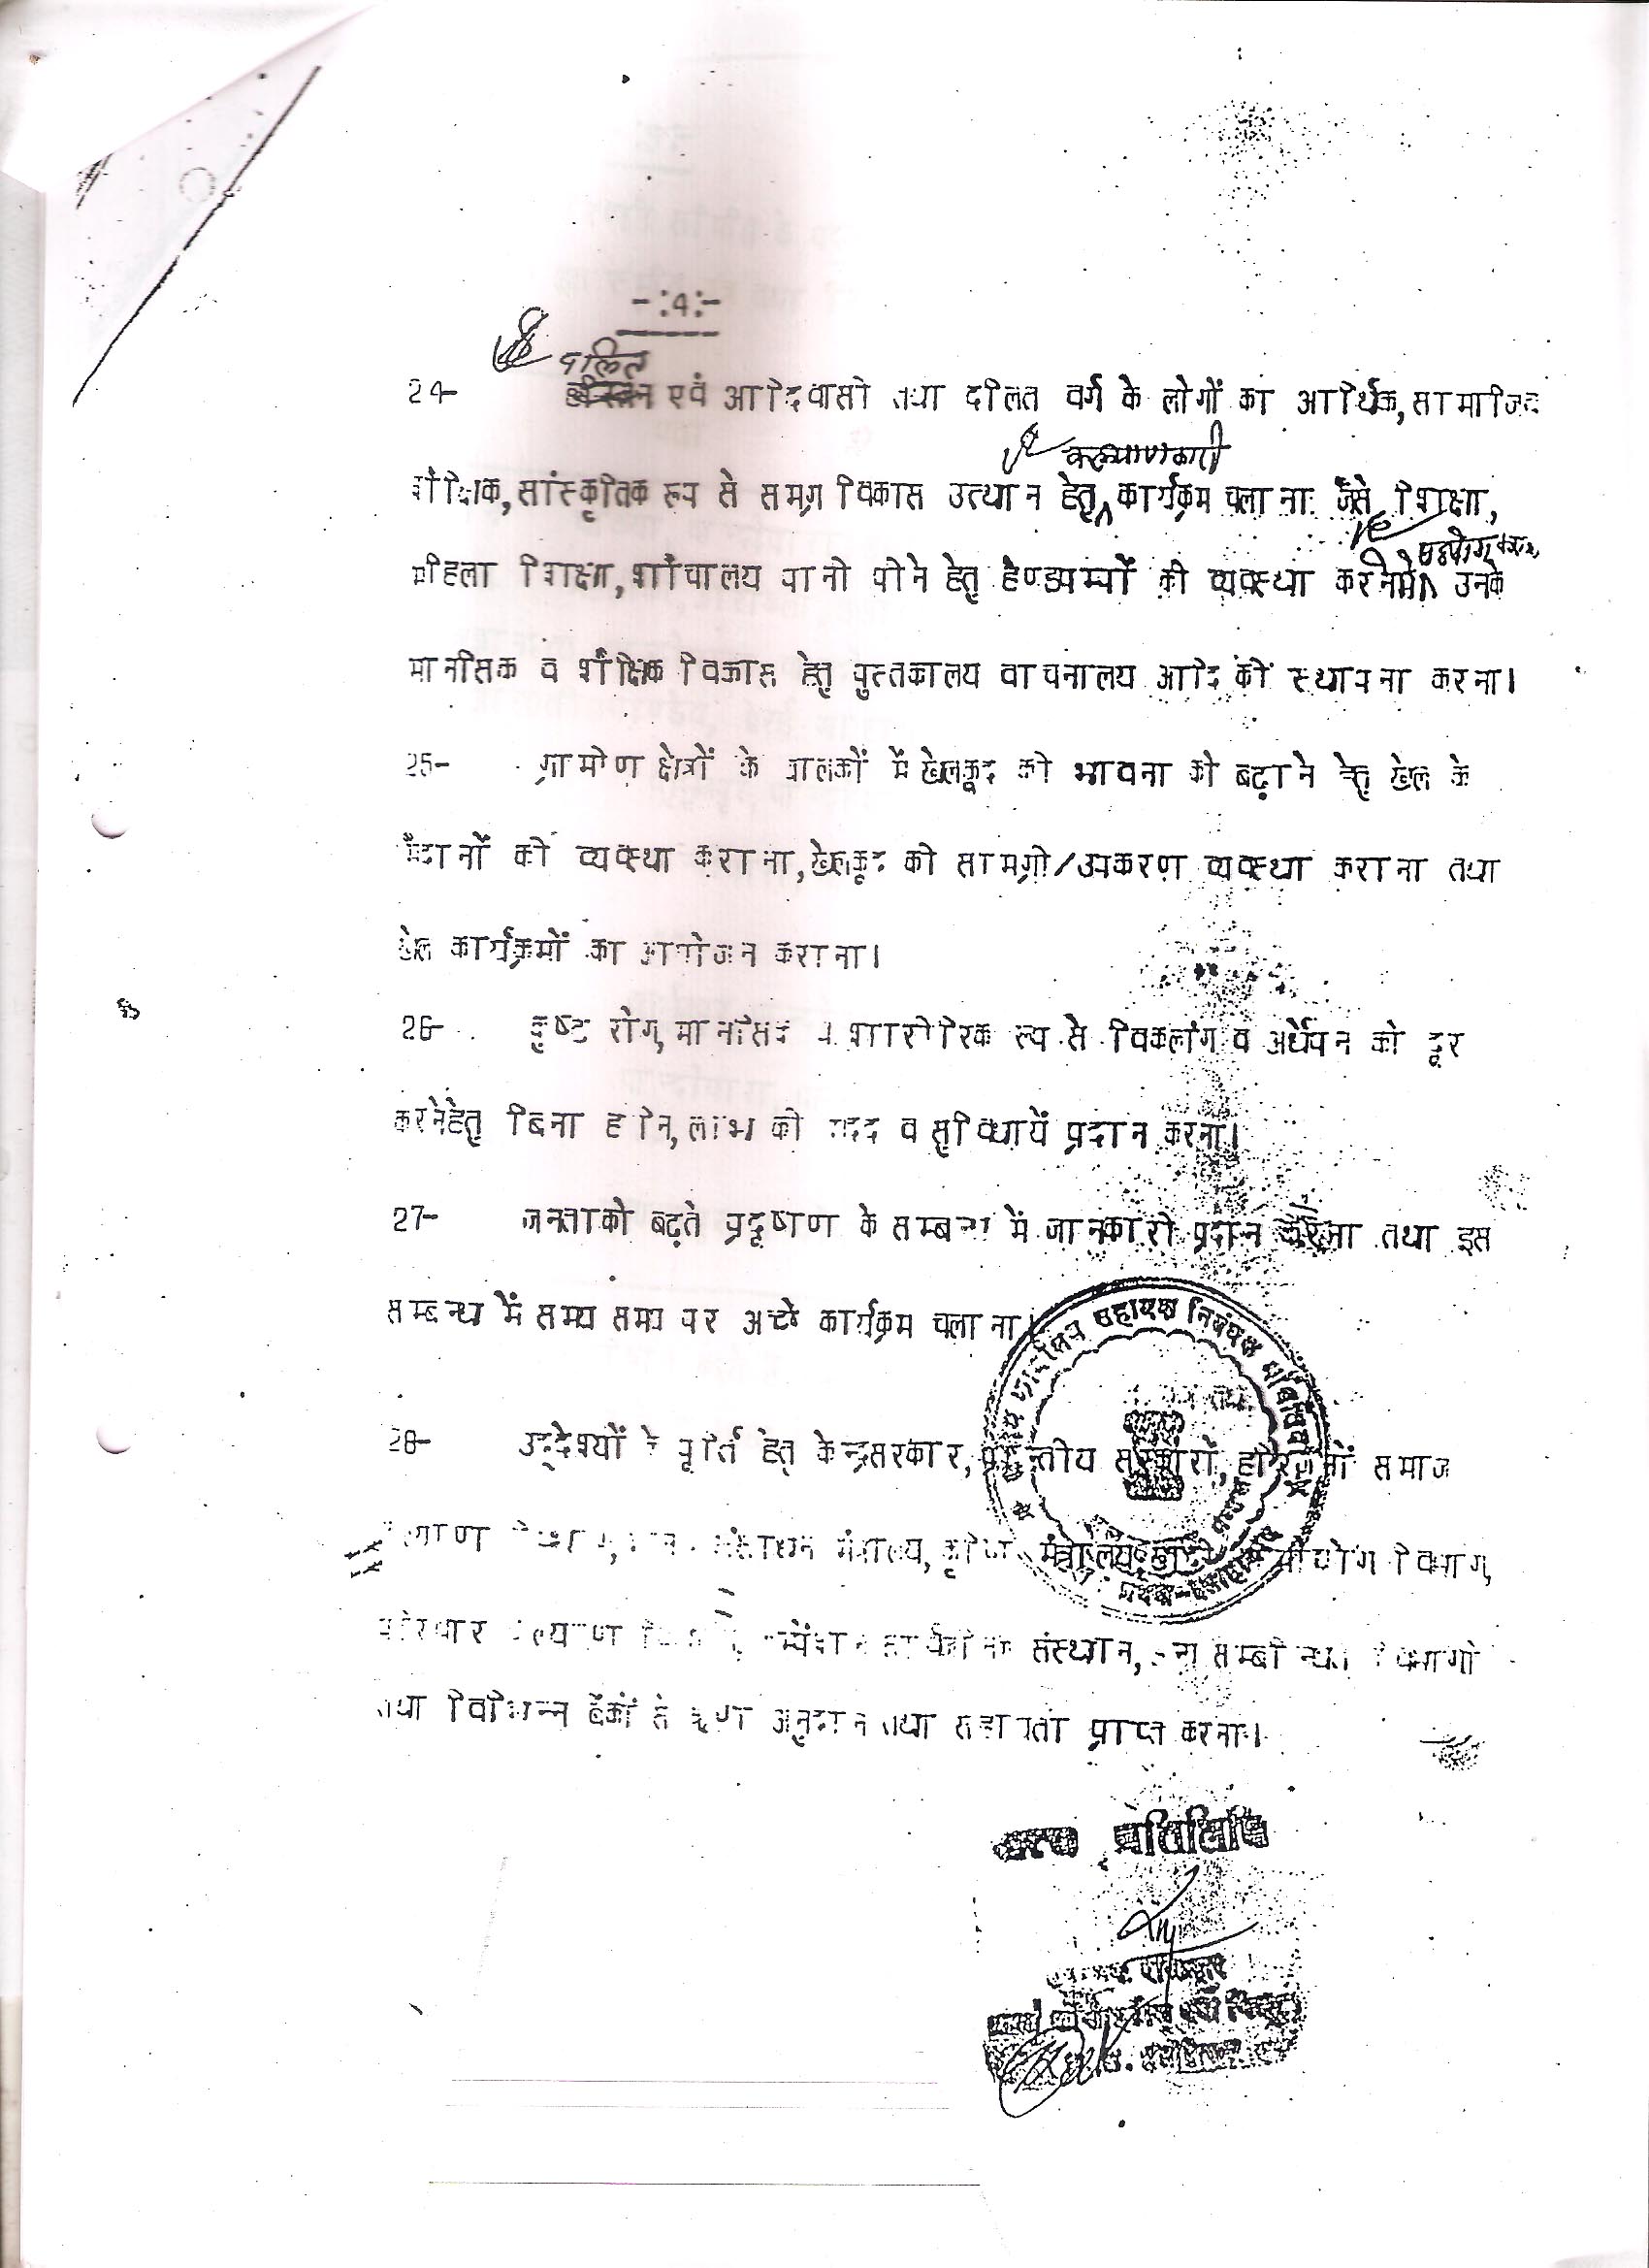 -:4:-
दलित
24- एवं आदिवासी तथा दलित वर्ग के लोगों का आर्थिक, सामाजिक
कल्याणकारी
शैक्षिक, सांस्कृतिक रूप से समग्र विकास उत्थान हेतु कार्यक्रम चलाना जैसे शिक्षा,
सहयोग करना,
महिला शिक्षा, शौचालय पानी पीने हेतु हैण्डपम्पों की व्यवस्था करनेमें उनके
मानसिक व शैक्षिक विकास हेतु पुस्तकालय वाचनालय आदि की स्थापना करना।
25- ग्रामीण क्षेत्रों के बालकों में खेलकूद की भावना को बढ़ाने हेतु खेल के
मैदानों की व्यवस्था कराना, खेलकूद की सामग्री/उपकरण व्यवस्था कराना तथा
खेल कार्यक्रमों का आयोजन कराना।
26- कुष्ट रोग, मानसिक व शारीरिक रूप से विकलांग व अंधेपन को दूर
करनेहेतु बिना हानि, लाभ की मदद व सुविधायें प्रदान करना।
27- जनताको बढ़ते प्रदूषण के सम्बन्ध में जानकारी प्रदान करना तथा इस
सम्बन्ध में समय समय पर अच्छे कार्यक्रम चलाना।
28- उद्देश्यों के पूर्ति हेतु केन्द्रसरकार, प्रान्तीय सरकारों, समाज
मंत्रालय, कृषि मंत्रालय, विभाग,
परिवार कल्याण संस्थान, सम्बन्धित विभागों
तथा विभिन्न बैंकों से ऋण अनुदान तथा सहायता प्राप्त करना।
कार्यालय सहायक निबंधक
सत्य प्रतिलिपि